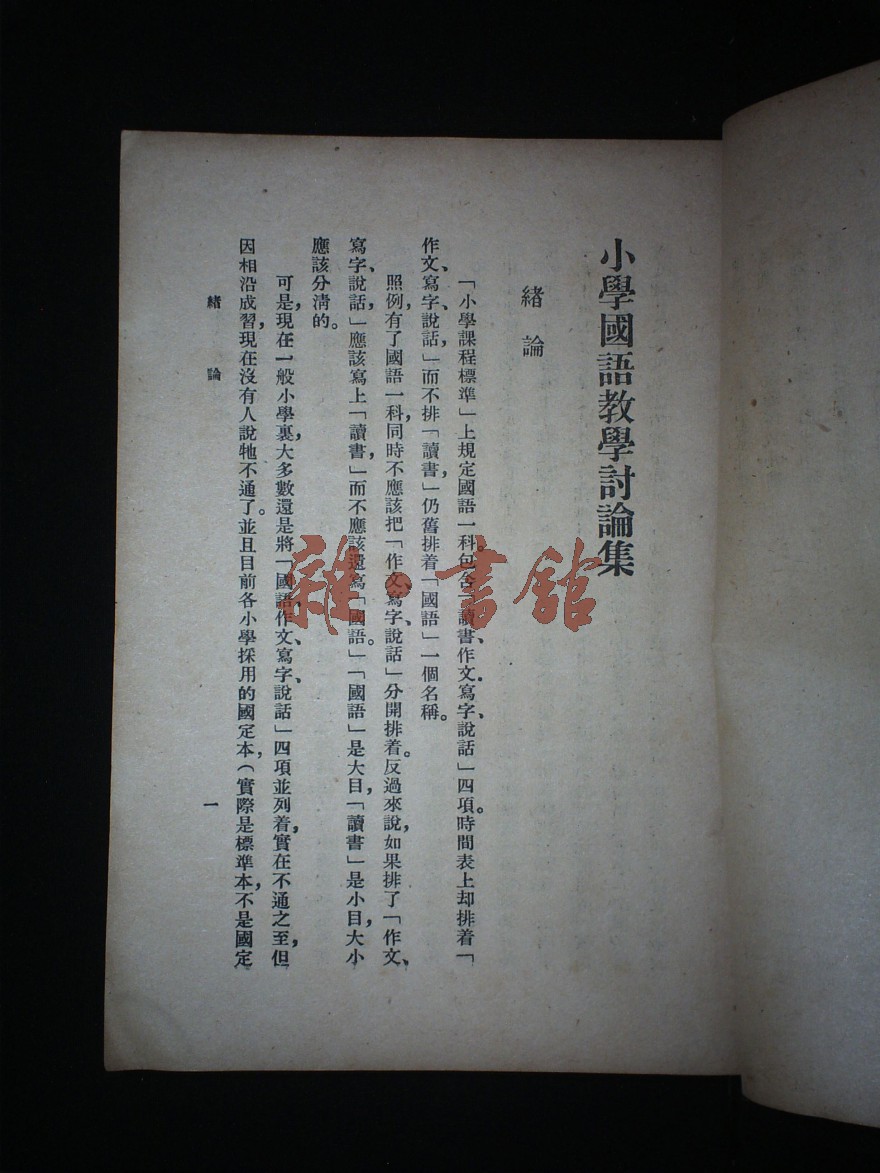 小學國語教學討論集
緒論
「小學課程標準」上規定國語一科。包含「讀書、作文、寫字、說話」四項。時間表上却排着「
作文、寫字、說話,」而不排「讀書,」仍舊排着「國語」一個名稱。
照例,有了國語一科,同時不應該把「作文、寫字、說話」分開排着。反過來說,如果排了「作文、
寫字、說話,」應該寫上「讀書,」而不應該還寫「國語。」「國語」是大目,「讀書」是小目,大小
應該分清的。
可是,現在一般小學裏,大多數還是將「國語、作文、寫字、說話」四項並列着,實在不通之至,但
因相沿成習,現在沒有人說牠不通了。並且目前各小學採用的國定本,(實際是標準本,不是國定
緒論
一
雜·書館